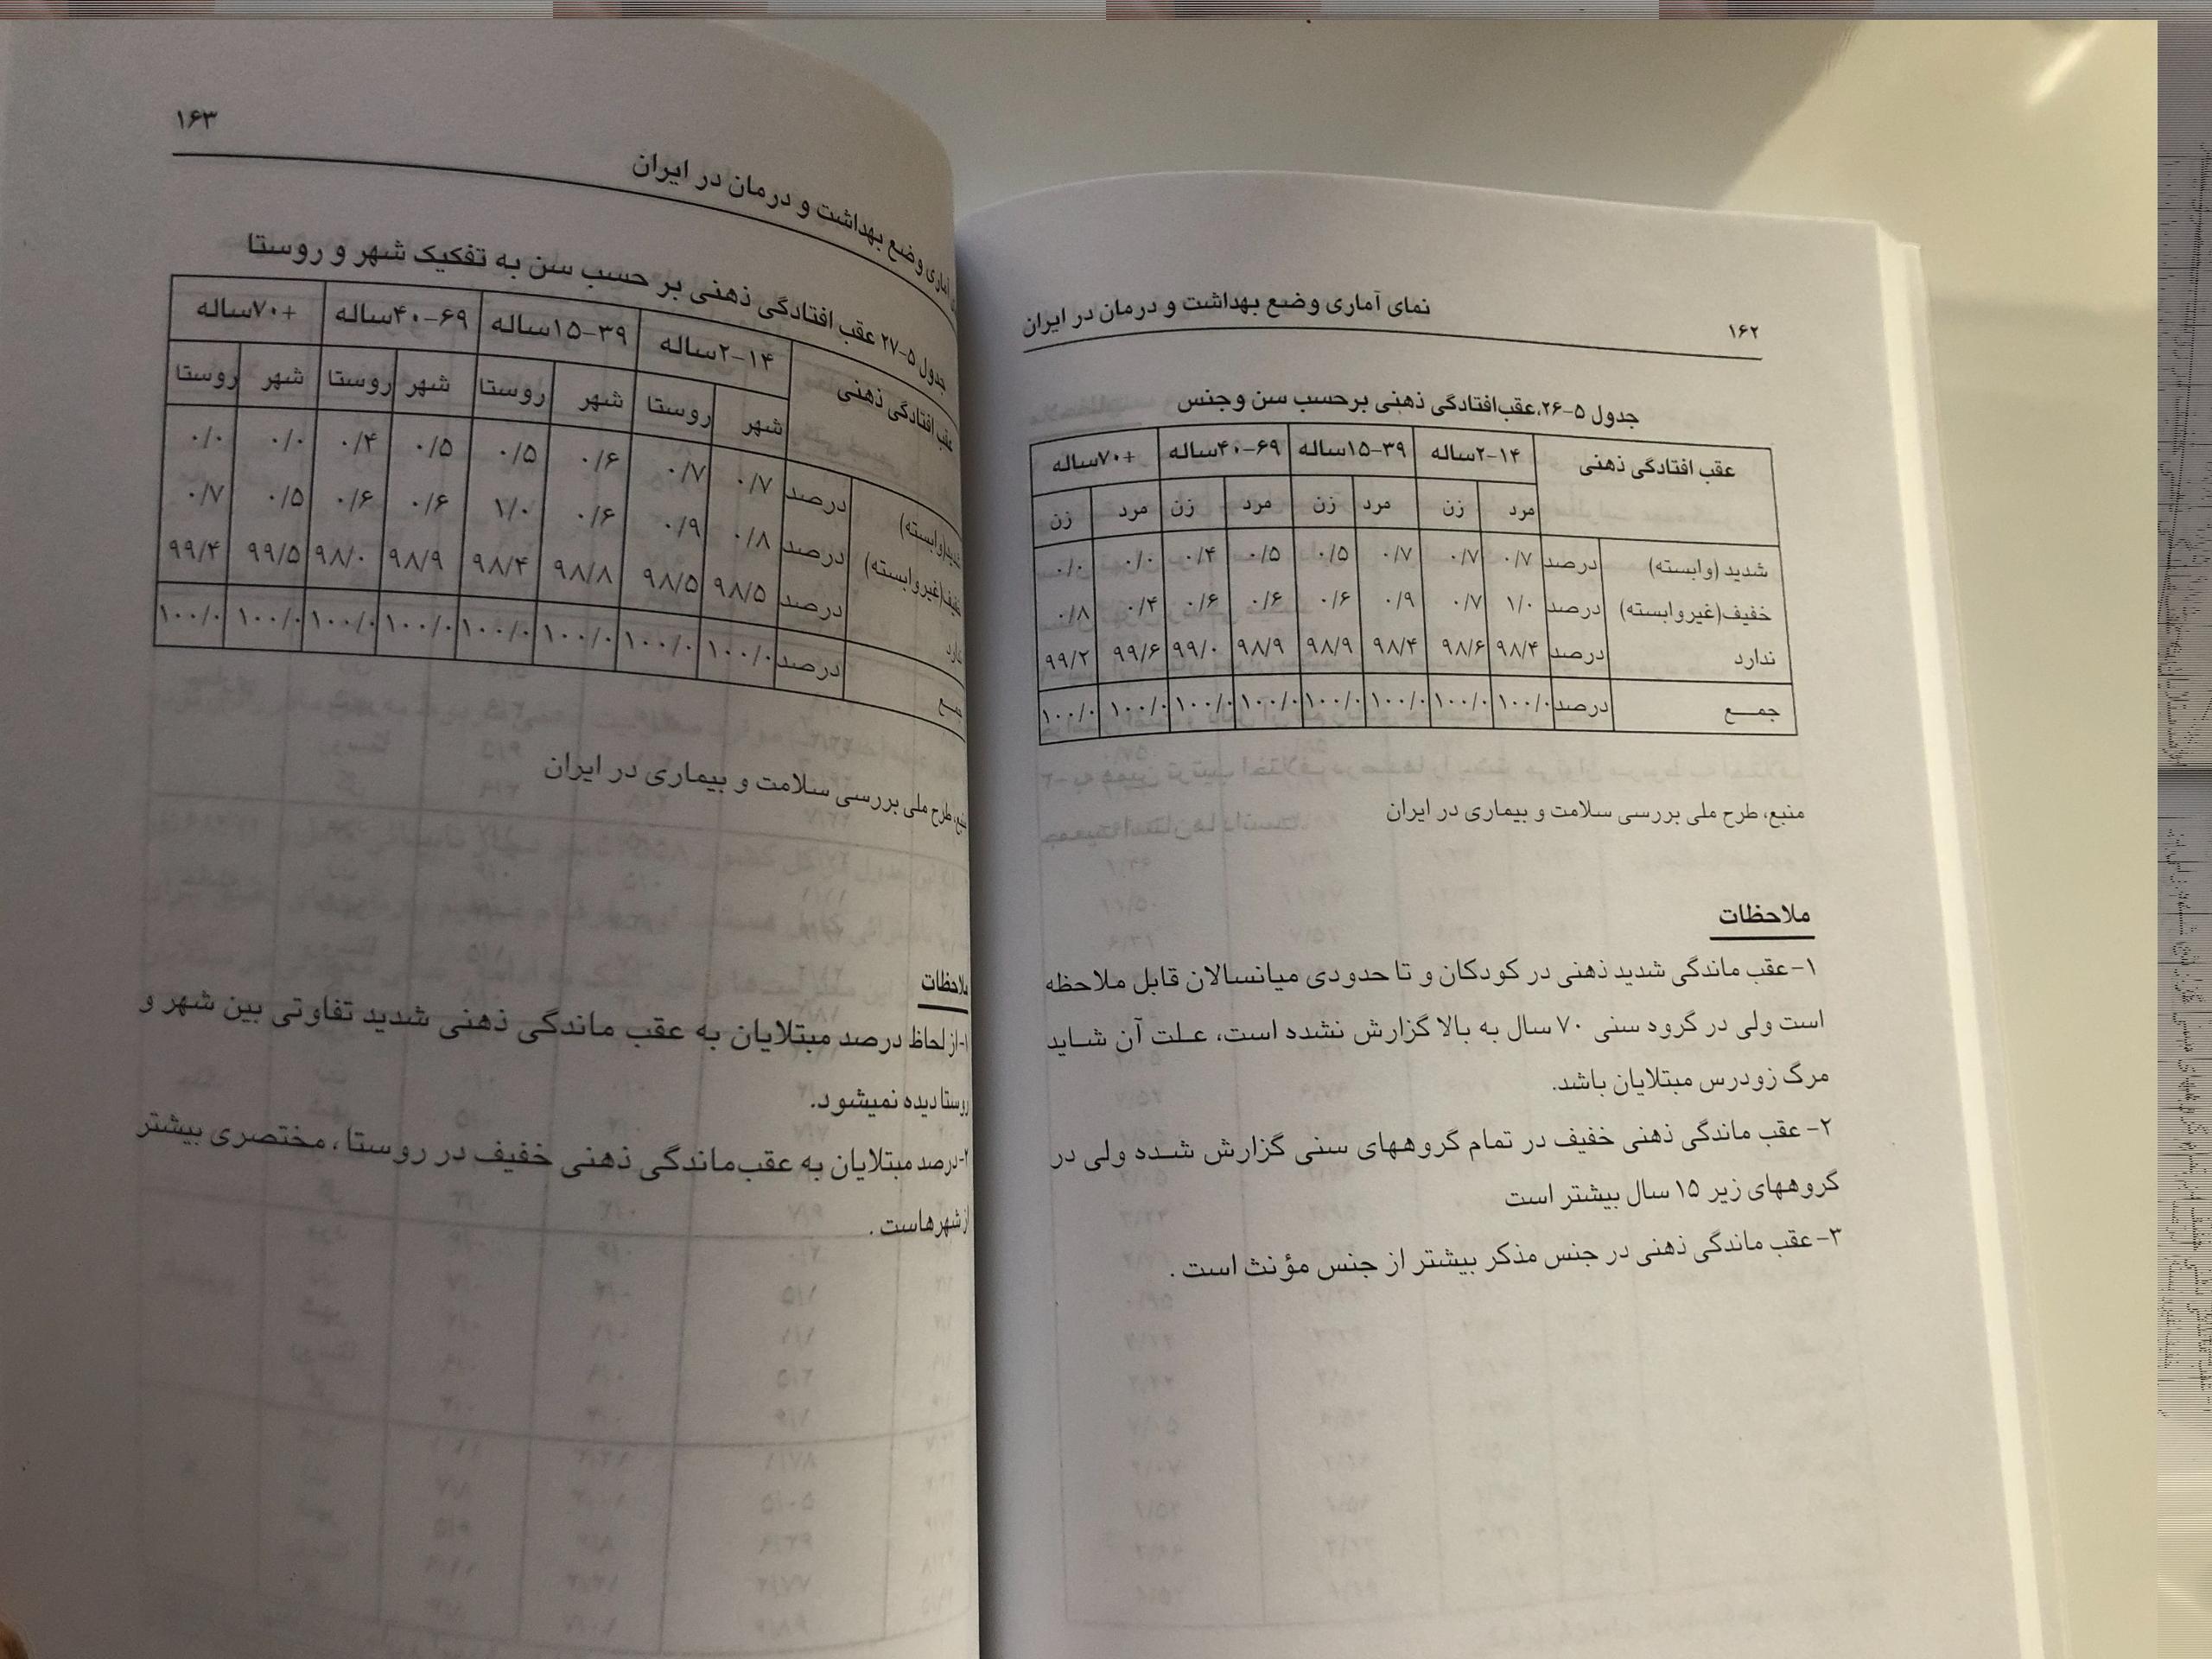 ۱۶۲
نمای آماری وضع بهداشت و درمان در ایران
جدول ۵-۲۶.عقب‌افتادگی ذهنی برحسب سن وجنس
عقب افتادگی ذهنی ۲-۱۴ساله ۱۵-۳۹ساله ۴۰-۶۹ساله +۷۰ساله
مرد زن مرد زن مرد زن مرد زن
شدید (وابسته) درصد ۰/۷ ۰/۷ ۰/۷ ۰/۵ ۰/۵ ۰/۴ ۰/۰ ۰/۰
خفیف(غیروابسته) درصد ۱/۰ ۰/۷ ۰/۹ ۰/۶ ۰/۶ ۰/۶ ۰/۴ ۰/۸
ندارد درصد ۹۸/۴ ۹۸/۶ ۹۸/۴ ۹۸/۹ ۹۸/۹ ۹۹/۰ ۹۹/۶ ۹۹/۲
جمـــع درصد ۱۰۰/۰ ۱۰۰/۰ ۱۰۰/۰ ۱۰۰/۰ ۱۰۰/۰ ۱۰۰/۰ ۱۰۰/۰ ۱۰۰/۰
منبع، طرح ملی بررسی سلامت و بیماری در ایران
ملاحظات
۱-عقب ماندگی شدید ذهنی در کودکان و تا حدودی میانسالان قابل ملاحظه
است ولی در گروه سنی ۷۰ سال به بالا گزارش نشده است، علـت آن شـاید
مرگ زودرس مبتلایان باشد.
۲- عقب ماندگی ذهنی خفیف در تمام گروههای سنی گزارش شـده ولی در
گروههای زیر ۱۵ سال بیشتر است
۳-عقب ماندگی ذهنی در جنس مذکر بیشتر از جنس مؤنث است .
۱۶۳
آماری وضع بهداشت و درمان در ایران
جدول ۵-۲۷ عقب افتادگی ذهنی بر حسب سن به تفکیک شهر و روستا
عقب افتادگی ذهنی ۲-۱۴ساله ۱۵-۳۹ساله ۴۰-۶۹ساله +۷۰ساله
شهر روستا شهر روستا شهر روستا شهر روستا
(وابسته) درصد ۰/۷ ۰/۷ ۰/۶ ۰/۵ ۰/۵ ۰/۴ ۰/۰ ۰/۰
(غیروابسته) درصد ۰/۸ ۰/۹ ۰/۶ ۱/۰ ۰/۶ ۰/۶ ۰/۵ ۰/۷
درصد ۹۸/۵ ۹۸/۵ ۹۸/۸ ۹۸/۴ ۹۸/۹ ۹۸/۰ ۹۹/۵ ۹۹/۴
درصد ۱۰۰/۰ ۱۰۰/۰ ۱۰۰/۰ ۱۰۰/۰ ۱۰۰/۰ ۱۰۰/۰ ۱۰۰/۰ ۱۰۰/۰
منبع، طرح ملی بررسی سلامت و بیماری در ایران
ملاحظات
۱-از لحاظ درصد مبتلایان به عقب ماندگی ذهنی شدید تفاوتی بین شهر و
روستا دیده نمیشود.
۲-درصد مبتلایان به عقب‌ماندگی ذهنی خفیف در روستا، مختصری بیشتر
از شهرهاست .